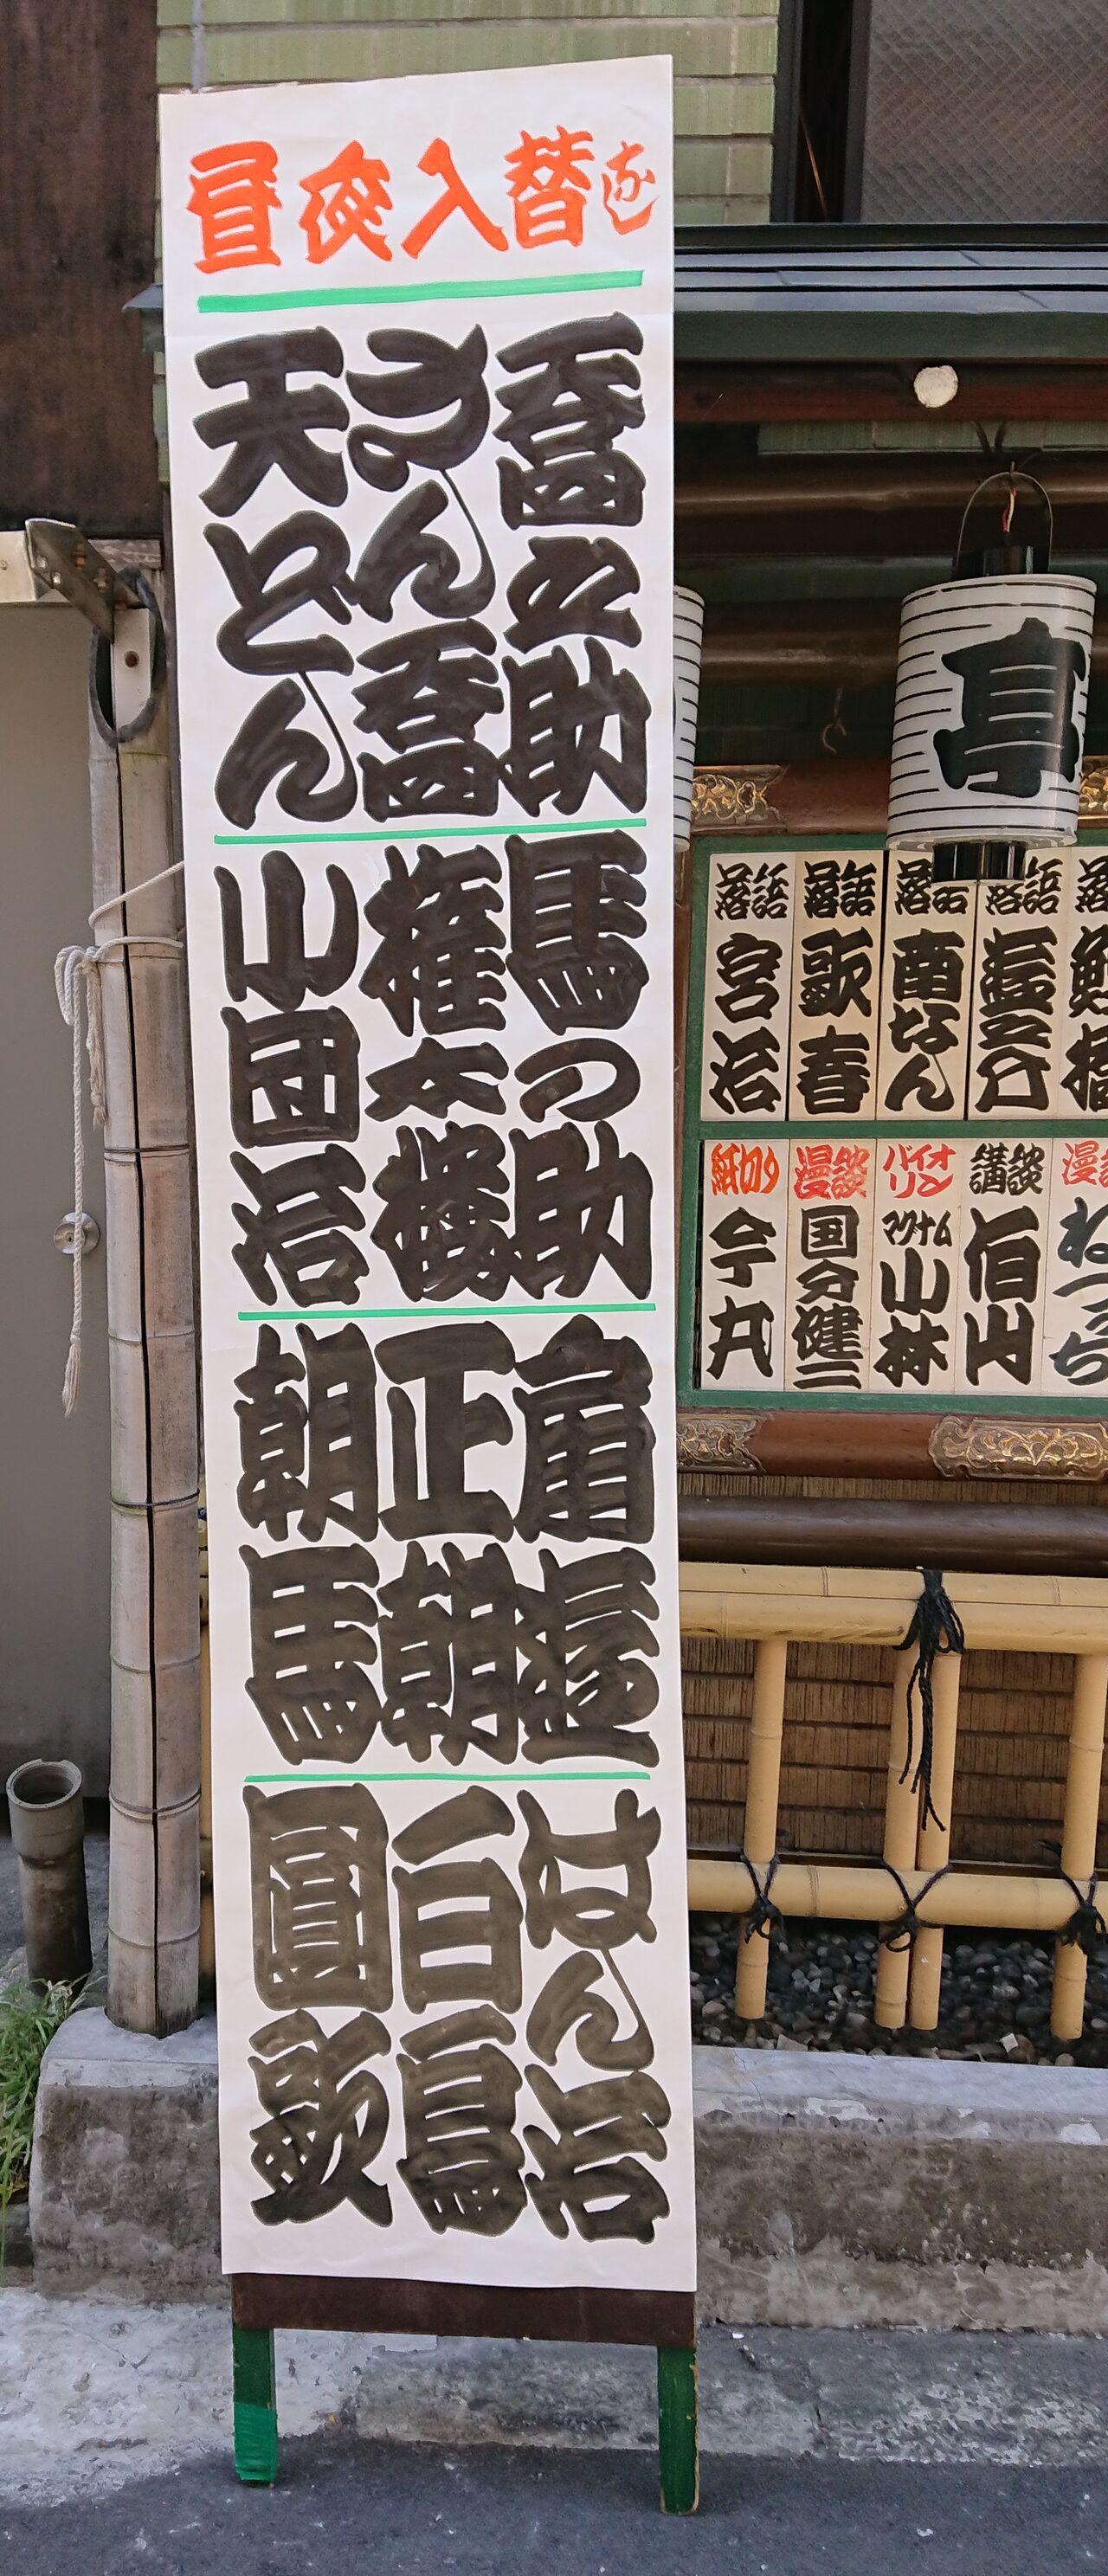 昼夜入替なし
喬之助
さん喬
天どん
馬の助
権太楼
小団治
扇遊
正朝
朝馬
はん治
白鳥
圓歌
亭
落語 遊之介
落語 南なん
落語 歌春
落語 宮治
漫談 ねづっち
講談 伯山
バイオリン マグナム小林
漫談 国分健二
紙切り 今丸